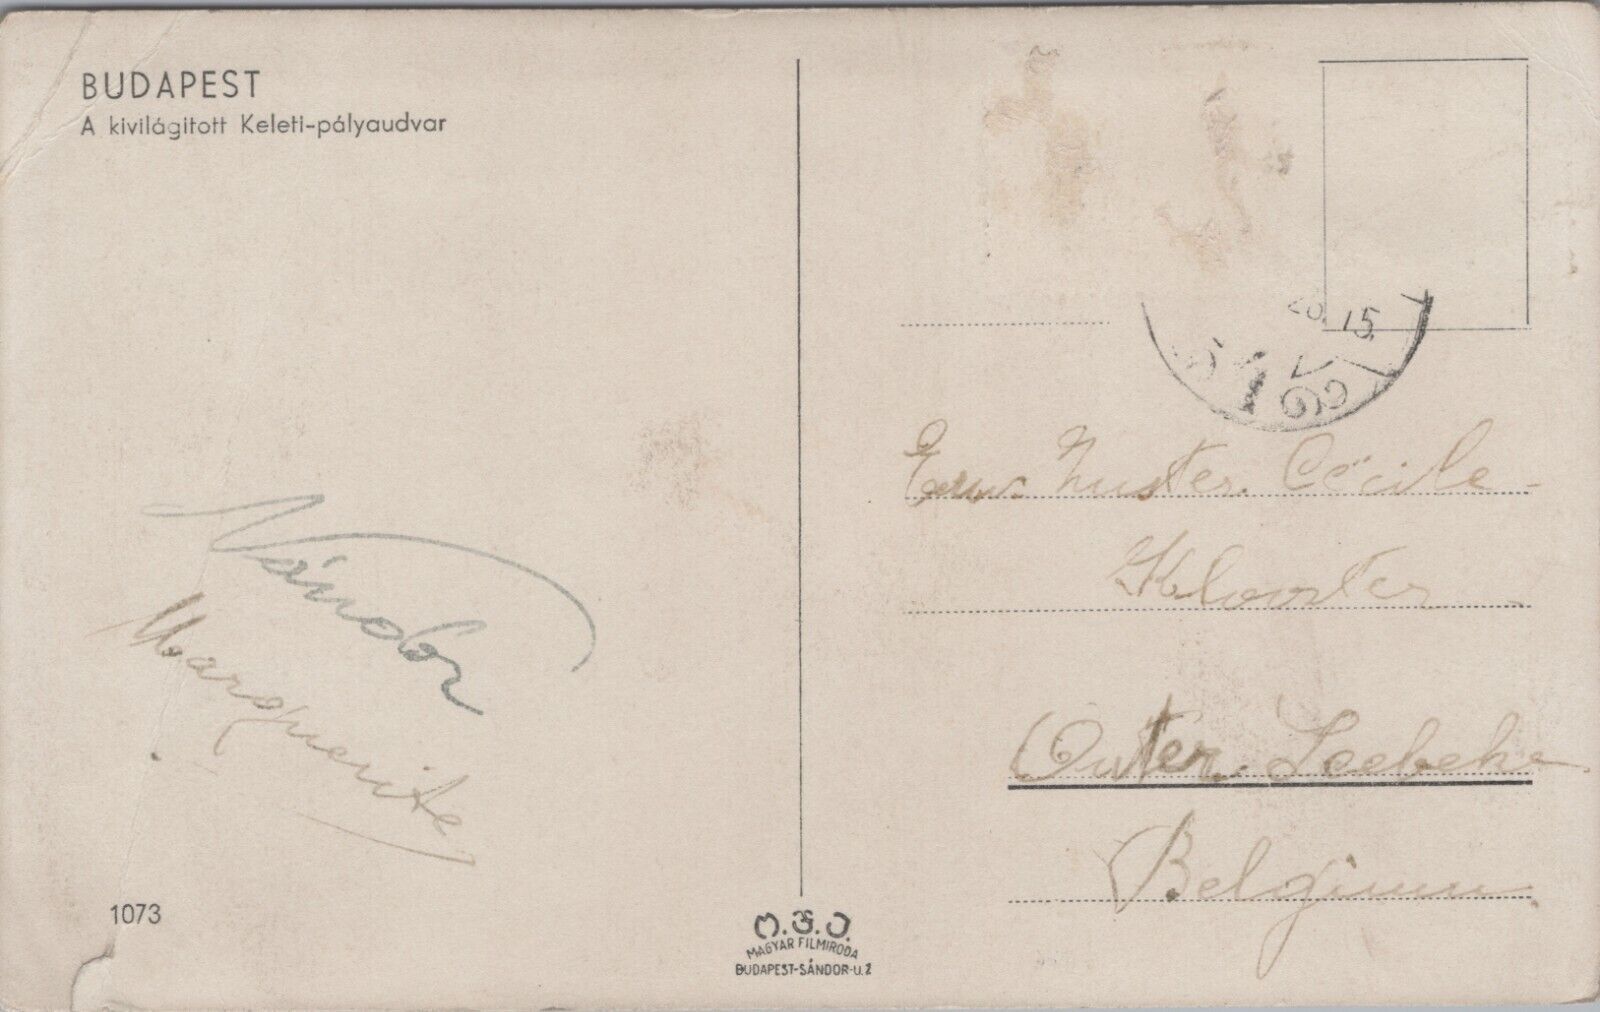 BUDAPEST
A kivilágitott Keleti-pályaudvar
Nándor
Marguerite
1073
M.F.I.
MAGYAR FILMIRODA
BUDAPEST-SÁNDOR-U.2
15.
Eerw. Zuster. Cécile
Klooster
Outer.
Belgium.